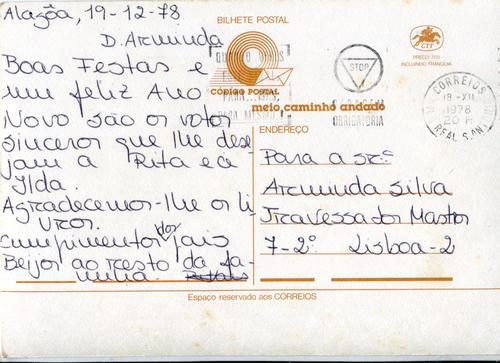 Alagôa, 19-12-78
BILHETE POSTAL
D. Arminda
Boas Festas e
um feliz Ano
Novo são os votos
sinceros que lhe dese
jam a Rita e a
Ilda.
Agradecemos-lhe os li
vros.
cumprimentos dos pais
Beijos ao resto da fa-
milia.
CÓDIGO POSTAL
meio caminho andado
STOP
OBRIGATÓRIA
CTT
PREÇO 7$00
INCLUINDO FRANQUIA
CORREIOS
18-XII
1978
20 H
ENDEREÇO
Para a sr.ª
Arminda Silva
Travessa dos Mastros
7-2º Lisboa-2
Espaço reservado aos CORREIOS